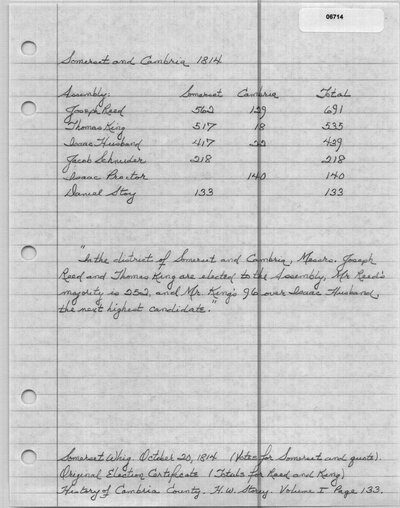 06714
Somerset and Cambria 1814
Assembly: Somerset Cambria Total
Joseph Reed 562 129 691
Thomas King 517 18 535
Isaac Husband 417 22 439
Jacob Schneider 218 218
Isaac Proctor 140 140
Daniel Stoy 133 133
"In the district of Somerset and Cambria, Messrs. Joseph
Reed and Thomas King are elected to the Assembly, Mr Reed's
majority is 252, and Mr. King's 96 over Isaac Husband,
the next highest candidate."
Somerset Whig. October 20, 1814 (Votes for Somerset and quote).
Original Election Certificate (Totals for Reed and King)
History of Cambria County. H.W. Storey. Volume I Page 133.